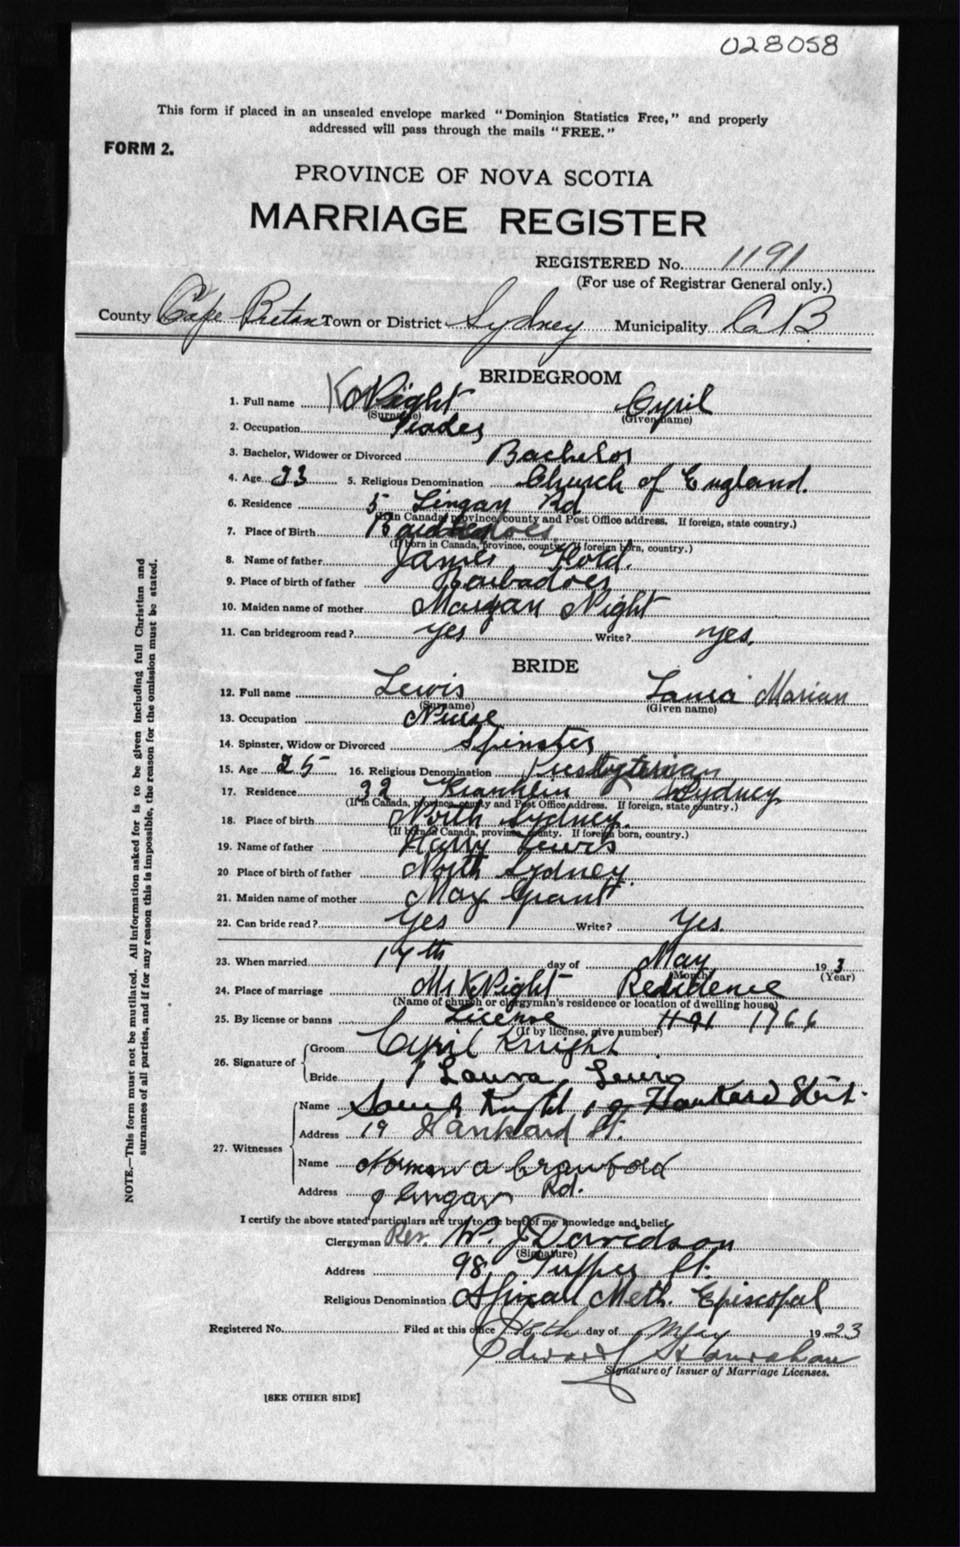 028058
This form if placed in an unsealed envelope marked "Dominion Statistics Free," and properly
addressed will pass through the mails "FREE."
FORM 2.
PROVINCE OF NOVA SCOTIA
MARRIAGE REGISTER
REGISTERED No. 1191
(For use of Registrar General only.)
County Cape Breton Town or District Sydney Municipality C B
BRIDEGROOM
1. Full name Cyril
(Surname) (Given name)
2. Occupation
3. Bachelor, Widower or Divorced Bachelor
4. Age 23 5. Religious Denomination Church of England.
6. Residence 5 Lingan Rd
(If in Canada, province, county and Post Office address. If foreign, state country.)
7. Place of Birth Barbadoes
(If born in Canada, province, county. If foreign born, country.)
8. Name of father James Ford.
9. Place of birth of father Barbadoes
10. Maiden name of mother Night
11. Can bridegroom read? yes Write? yes.
BRIDE
12. Full name Lewis Laura Marian
(Surname) (Given name)
13. Occupation Nurse
14. Spinster, Widow or Divorced Spinster
15. Age 25 16. Religious Denomination Presbyterian
17. Residence 32 Franklin Sydney
(If in Canada, province, county and Post Office address. If foreign, state country.)
18. Place of birth North Sydney.
(If born in Canada, province, county. If foreign born, country.)
19. Name of father Harry Lewis
20 Place of birth of father North Sydney.
21. Maiden name of mother May Grant
22. Can bride read? Yes Write? Yes.
23. When married 17th day of May 19 3
(Month) (Year)
24. Place of marriage Mr KNight Residence
(Name of church or clergyman's residence or location of dwelling house)
25. By license or banns License 1766
(If by license, give number)
26. Signature of Groom Cyril Knight
Bride Laura Lewis
27. Witnesses Name Knight 19 Hankard Street.
Address 19 Hankard St.
Name Norman A Crawford
Address 9 Lingan Rd.
I certify the above stated particulars are true to the best of my knowledge and belief.
Clergyman Rev. W. J Davidson
(Signature)
Address 98 Tupper St.
Religious Denomination African Meth. Episcopal
Registered No. Filed at this office 18th day of May 1923
Edward Hanrahan
Signature of Issuer of Marriage Licenses.
[SEE OTHER SIDE]
NOTE.—This form must not be mutilated. All information asked for is to be given including full Christian and
surnames of all parties, and if for any reason this is impossible, the reason for the omission must be stated.